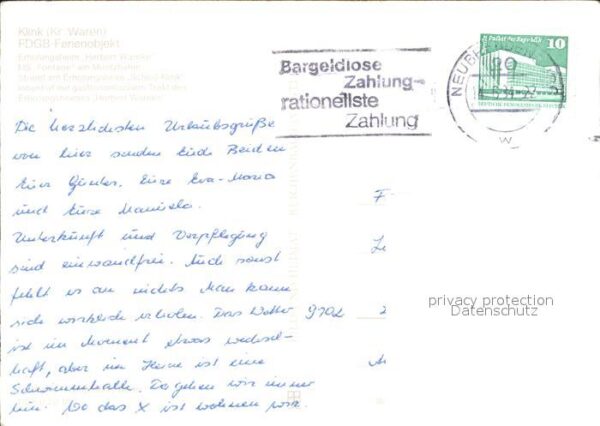 Klink (Kr. Waren)
FDGB-Ferienobjekt
Erholungsheim "Herbert Warnke"
MS "Fontane" am
Strand am Erholungsheim "Schloß Klink"
Erholungsheims "Herbert Warnke"
Bargeldlose
Zahlung-
rationellste
Zahlung
NEUBRANDENBURG
W
Palast der Republik
10
DEUTSCHE DEMOKRATISCHE
Die herzlichsten Urlaubsgrüße
von hier senden Euch Beiden
Eure Eva-Maria
und Eure Manuela.
Unterkunft und Verpflegung
sind einwandfrei. Auch sonst
fehlt es an nichts. Man kann
sich wirklich erholen. Das Wetter
ist im Moment etwas wechsel-
haft, aber im Heim ist eine
Schwimmhalle. Da gehen wir immer
hin. Wo das X ist wohnen wir.
F
9702
privacy protection
Datenschutz